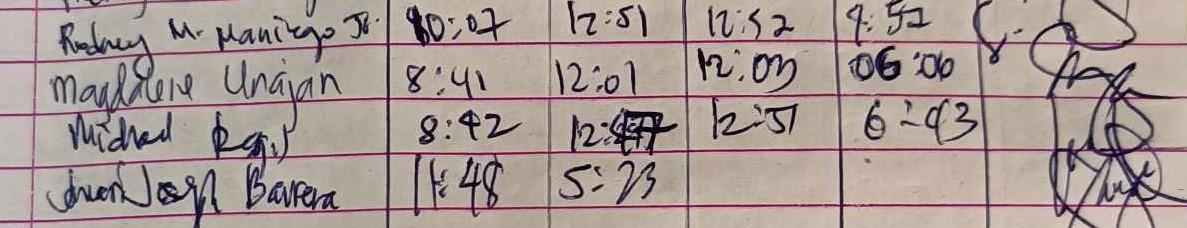 Rodney M. Maniego Jr. 10:07 12:51 12:52 4:52
Magdalene Unajan 8:41 12:01 12:03 06:00
Michael 8:42 12:51 6:03
Barrera 11:48 5:23